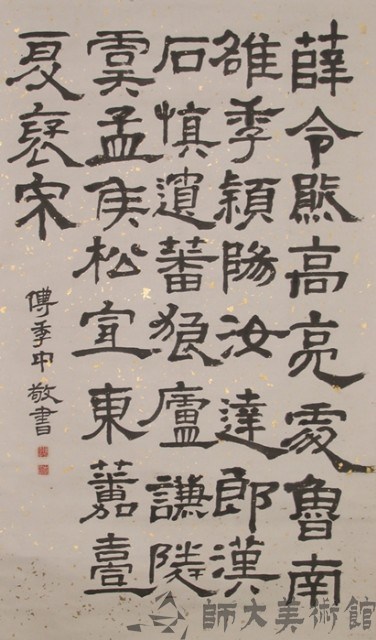 薛令熙高亮處魯南
雒季穎陽汝達郎漢
石慎遺蕃狼廬謙陵
虞孟侯松宜東蕃臺
夏褒宋
傅季中敬書
師大美術館